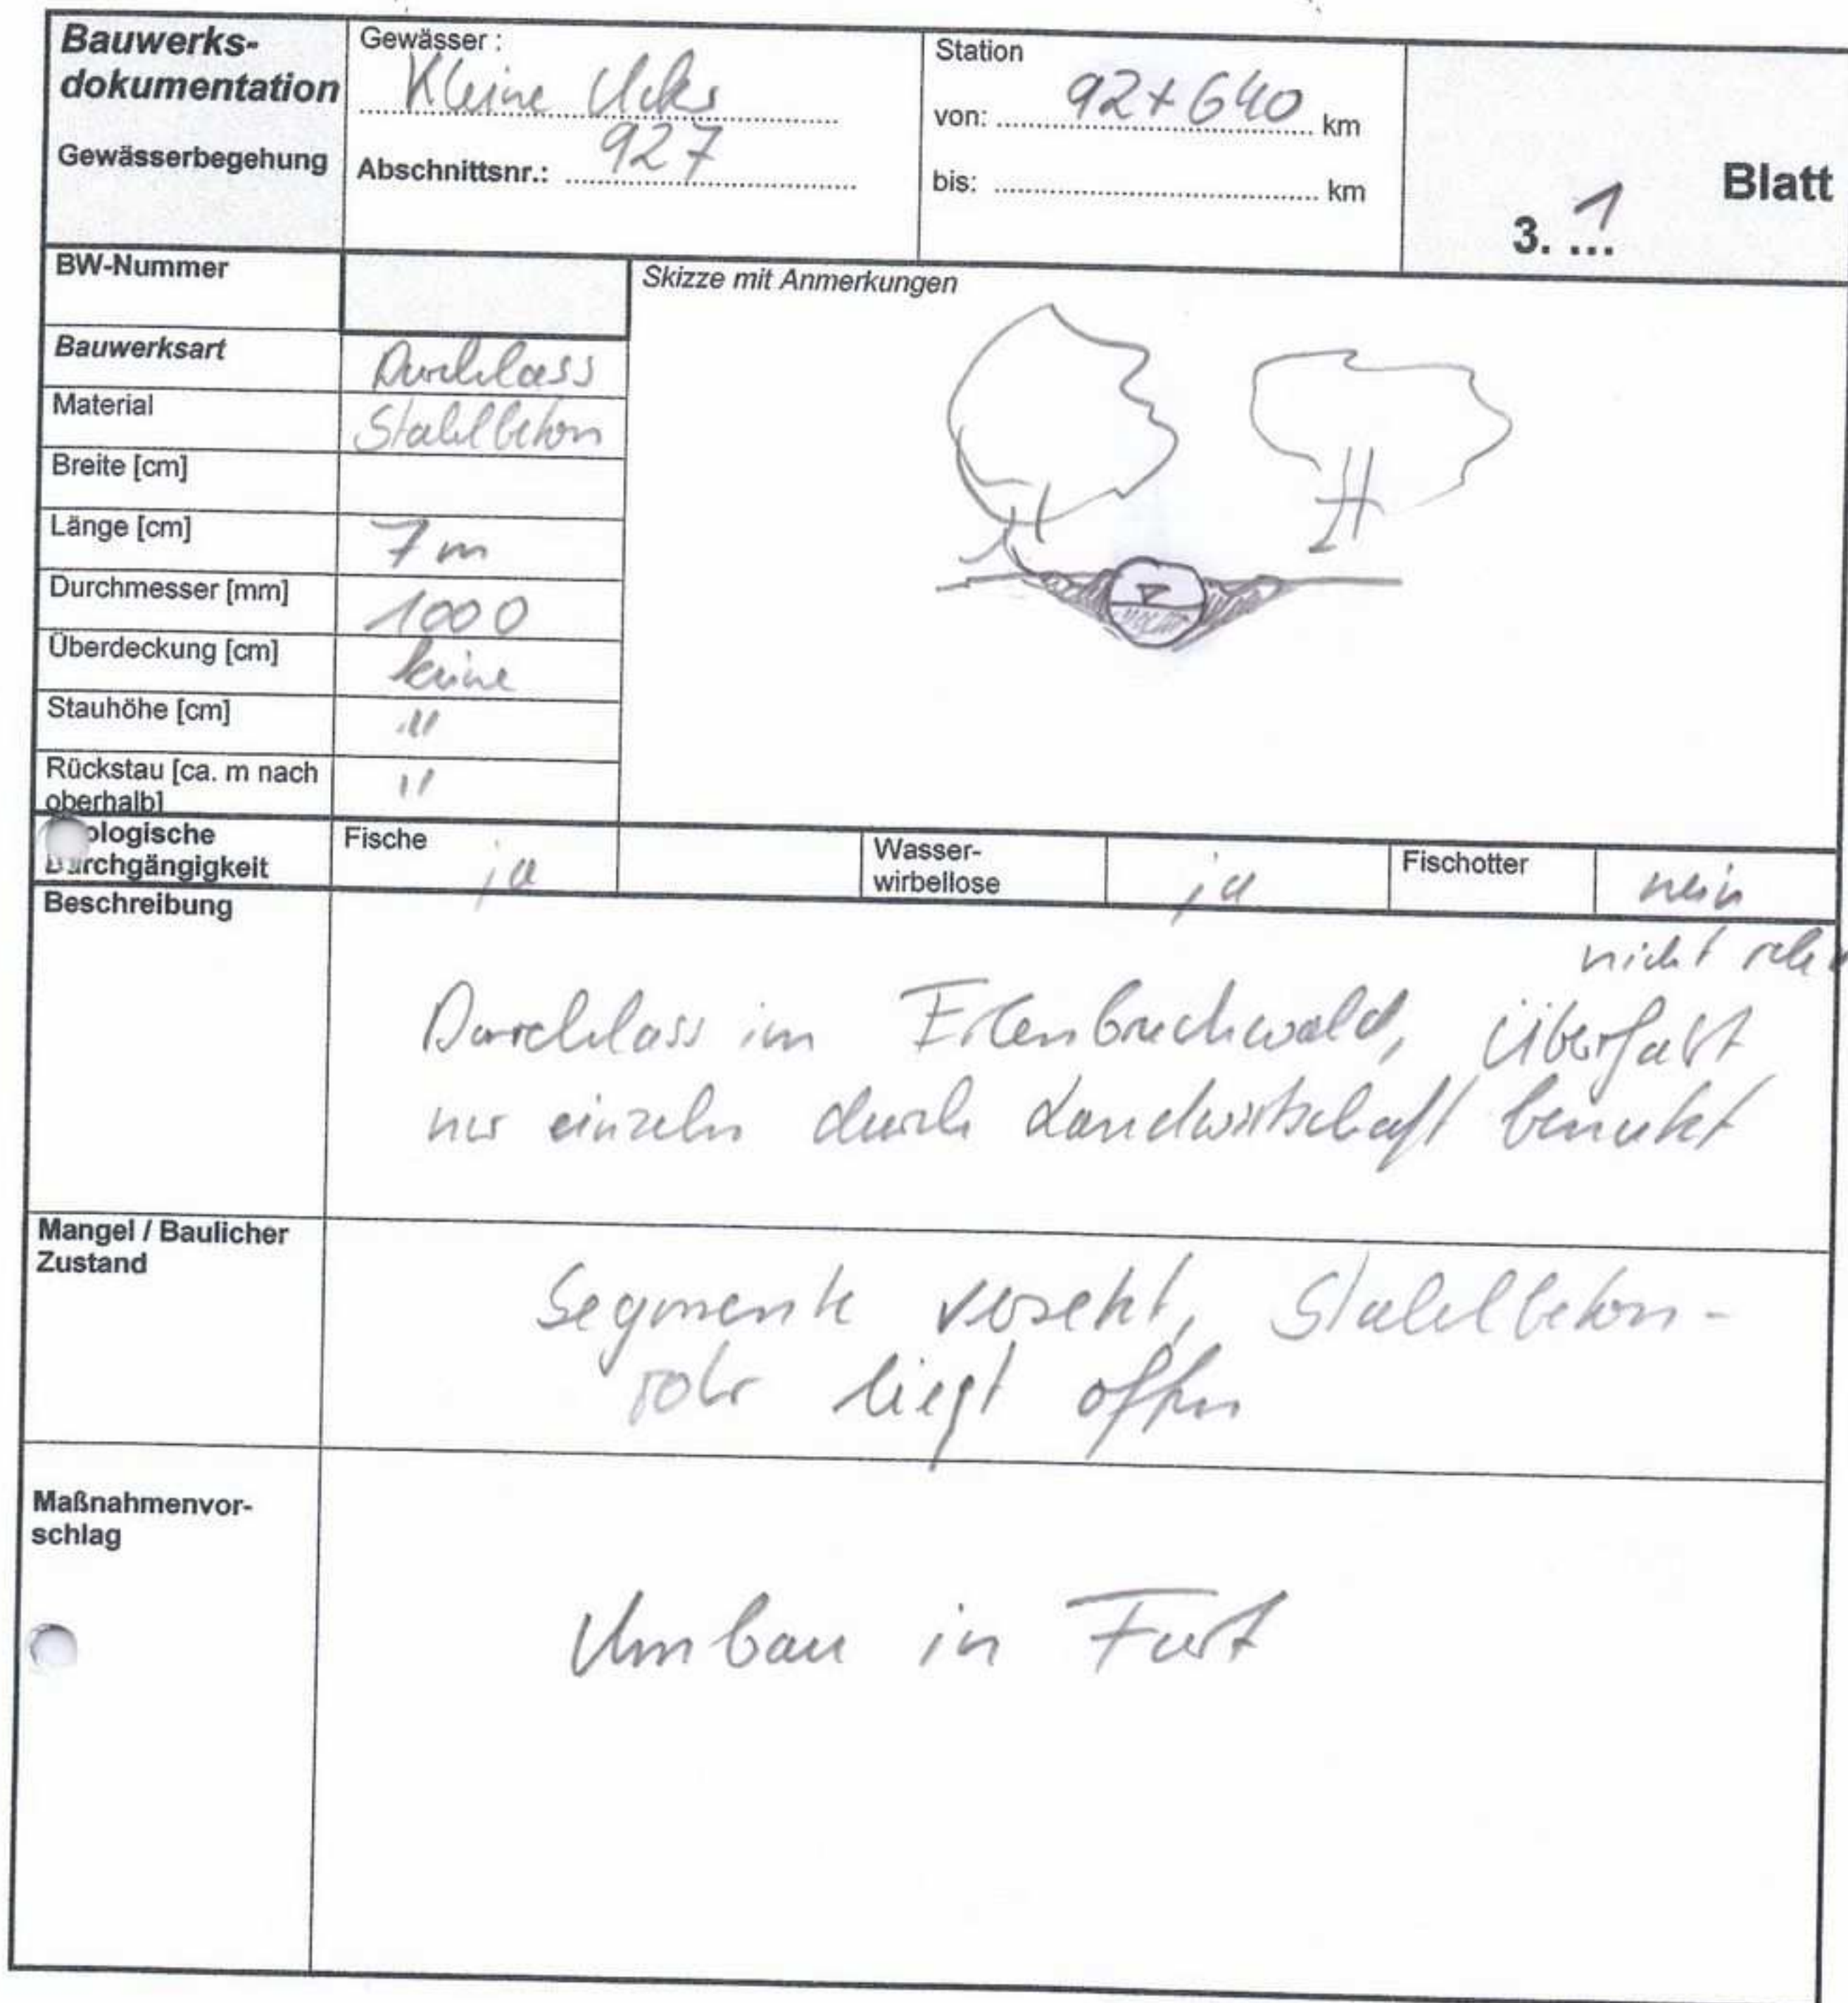 Bauwerks-
dokumentation
Gewässerbegehung
Gewässer :
Kleine
Abschnittsnr.: 927
Station
von: 92+640 km
bis: km
Blatt
3. 1
BW-Nummer
Skizze mit Anmerkungen
Bauwerksart Durchlass
Material Stahlbeton
Breite [cm]
Länge [cm] 7 m
Durchmesser [mm] 1000
Überdeckung [cm] keine
Stauhöhe [cm] "
Rückstau [ca. m nach
oberhalb] "
ologische
Durchgängigkeit
Fische ja
Wasser-
wirbellose ja
Fischotter nein
nicht
Beschreibung
Durchlass im Erlenbruchwald, Überfahrt
nur einzeln durch Landwirtschaft benutzt
Mangel / Baulicher
Zustand
Segmente versetzt, Stahlbeton-
rohr liegt offen
Maßnahmenvor-
schlag
Umbau in Furt